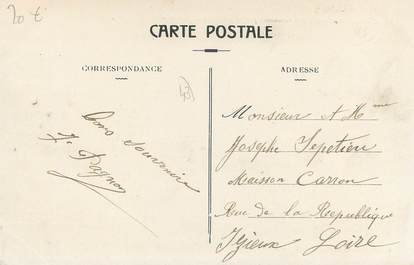 20 €
CARTE POSTALE
CORRESPONDANCE
ADRESSE
Bons souvenirs
Monsieur et Mme
Josephe
Maison Carron
Rue de la Republique
Izieux Loire